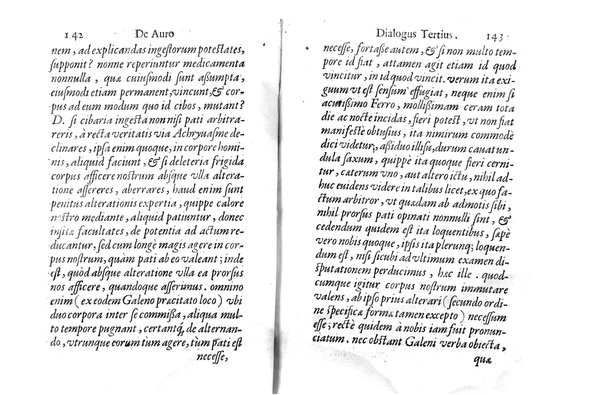 142 De Auro
nem, ad explicandas ingestorum potestates,
supponit? nonne reperiuntur medicamenta
nonnulla, quæ cuiusmodi sunt assumpta,
eiusmodi etiam permanent, vincunt, & cor-
pus ad eum modum quo id cibos, mutant?
D. si cibaria ingesta non nisi pati arbitra-
reris, à recta veritatis via Achryuasme de-
clinares, ipsa enim quoque, in corpore homi-
nis, aliquid faciunt, & si deleteria frigida
corpus afficere nostrum absque vlla altera-
tione assereres, aberrares, haud enim sunt
penitus alterationis expertia, quippe calore
nostro mediante, aliquid patiuntur, donec
insitæ facultates, de potentia ad actum re-
ducantur, sed cum longè magis agere in cor-
pus nostrum, quam pati ab eo valeant; inde
est, quòd absque alteratione vlla ea prorsus
nos afficere, quandoque asserimus. omnino
enim (ex eodem Galeno præcitato loco) vbi
duo corpora inter se commissa, aliqua mul-
to tempore pugnant, certantq́, de alternan-
do, vtrunque eorum tùm agere, tùm pati est
necesse,
Dialogus Tertius. 143
necesse, fortasse autem, & si non multo tem-
pore id fiat, attamen agit etiam id quod
vincitur, in id quod vincit. verum ita exi-
guum vt est sensum effugiat, neque enim si
acutissimo Ferro, mollissimam ceram tota
die ac nocte incidas, fieri potest, vt non fiat
manifestè obtusius, ita nimirum commodè
dici videtur, assiduo illisu, durum cauat un-
dula saxum, quippè ita quoque fieri cerni-
tur, caterum vno, aut altero ictu, nihil ad-
huc euidens videre in talibus licet, ex quo fa-
ctum arbitror, vt ut quadam ab admotis sibi,
nihil prorsus pati opinati nonnulli sint, &
cedendum quidem est ita loquentibus, sæpè
vero nobis quoque, ipsis ita plerunq; loquen-
dum est, nisi sicubi ad vltimum examen di-
sputationem perducimus, hæc ille. quod-
cumque igitur corpus nostrum immutare
valens, ab ipso prius alterari (secundo ordi-
ne specificæ formæ tamen excepto) necessum
esse; rectè quidem à nobis iam fuit pronun-
ciatum. nec obstant Galeni verba obiecta,
quæ